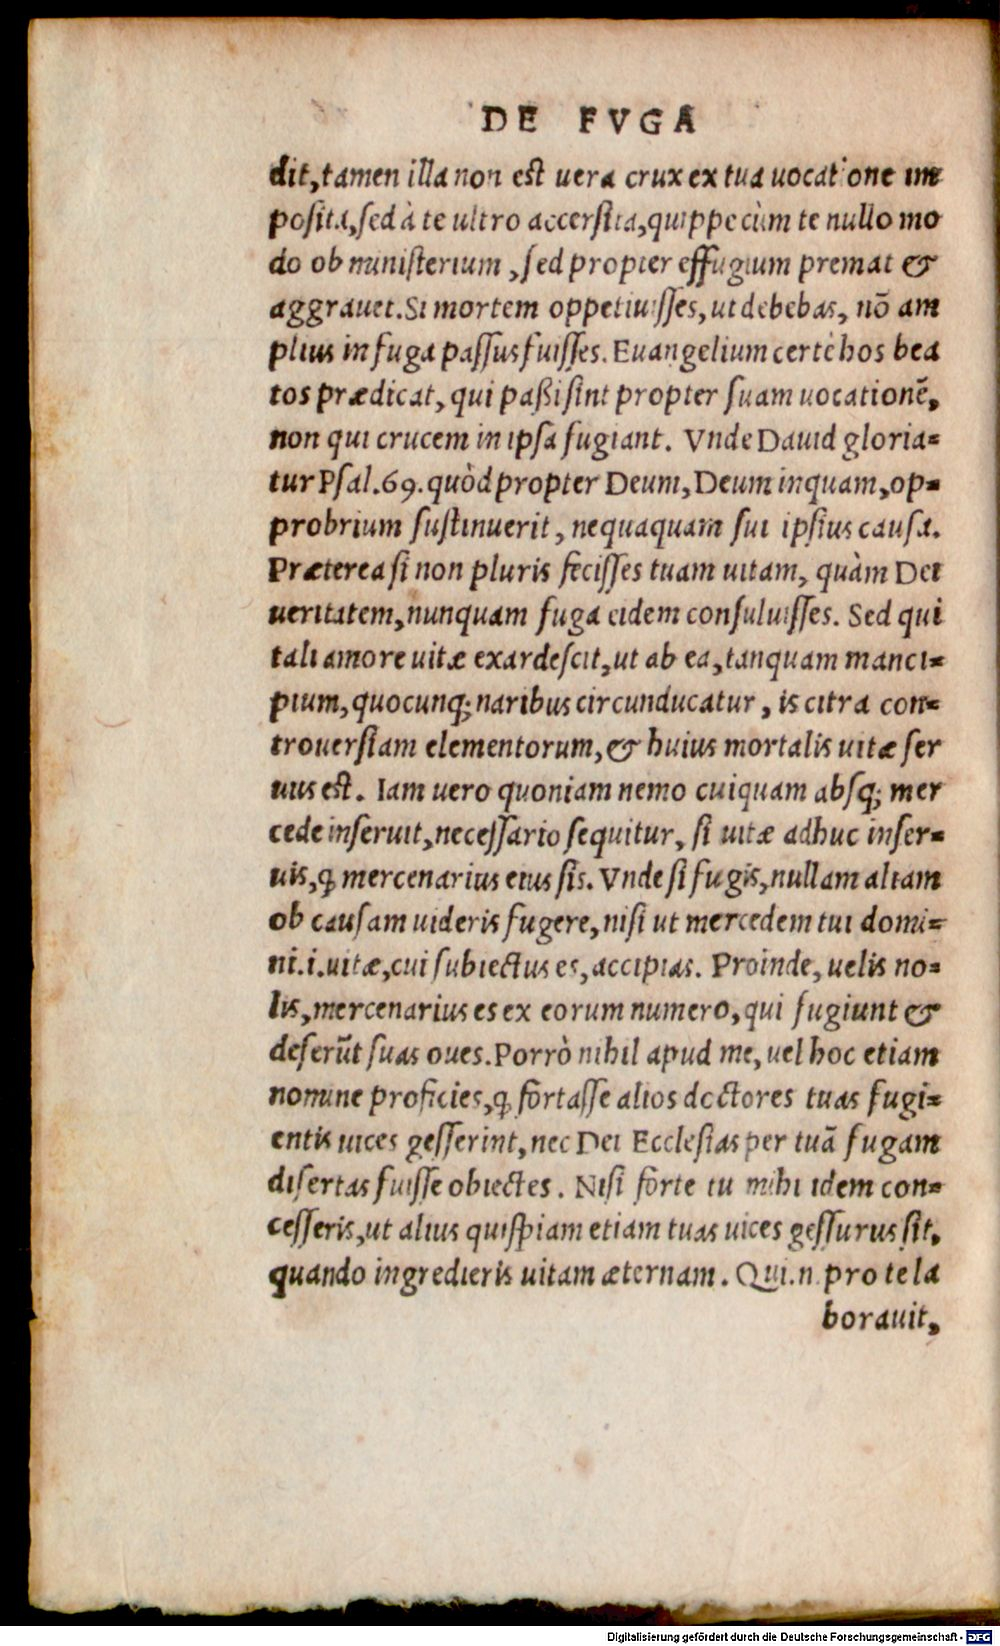 DE FVGA
dit, tamen illa non est uera crux ex tua uocatione im
posita, sed à te ultro accersita, quippe cùm te nullo mo
do ob ministerium, sed propter effugium premat &
aggrauet. Si mortem oppetiuisses, ut debebas, nõ am
plius in fuga passus fuisses. Euangelium certè hos bea
tos prædicat, qui paßi sint propter suam uocationẽ,
non qui crucem in ipsa fugiant. Vnde Dauid gloria=
tur Psal. 69. quòd propter Deum, Deum inquam, op=
probrium sustinuerit, nequaquam sui ipsius causa.
Præterea si non pluris fecisses tuam uitam, quàm Dei
ueritatem, nunquam fuga eidem consuluisses. Sed qui
tali amore uitæ exardescit, ut ab ea, tanquam manci=
pium, quocunq; naribus circunducatur, is citra con=
trouersiam elementorum, & huius mortalis uitæ ser
uus est. Iam uero quoniam nemo cuiquam absq; mer
cede inseruit, necessario sequitur, si uitæ adhuc inser=
uis, ꝙ mercenarius eius sis. Vnde si fugis, nullam aliam
ob causam uideris fugere, nisi ut mercedem tui domi=
ni .i. uitæ, cui subiectus es, accipias. Proinde, uelis no=
lis, mercenarius es ex eorum numero, qui fugiunt &
deserũt suas oues. Porrò nihil apud me, uel hoc etiam
nomine proficies, ꝙ fortasse alios doctores tuas fugi=
entis uices gesserint, nec Dei Ecclesias per tuã fugam
disertas fuisse obiectes. Nisi forte tu mihi idem con=
cesseris, ut alius quispiam etiam tuas uices gessurus sit,
quando ingredieris uitam æternam. Qui .n. pro te la
borauit,
Digitalisierung gefördert durch die Deutsche Forschungsgemeinschaft - DFG